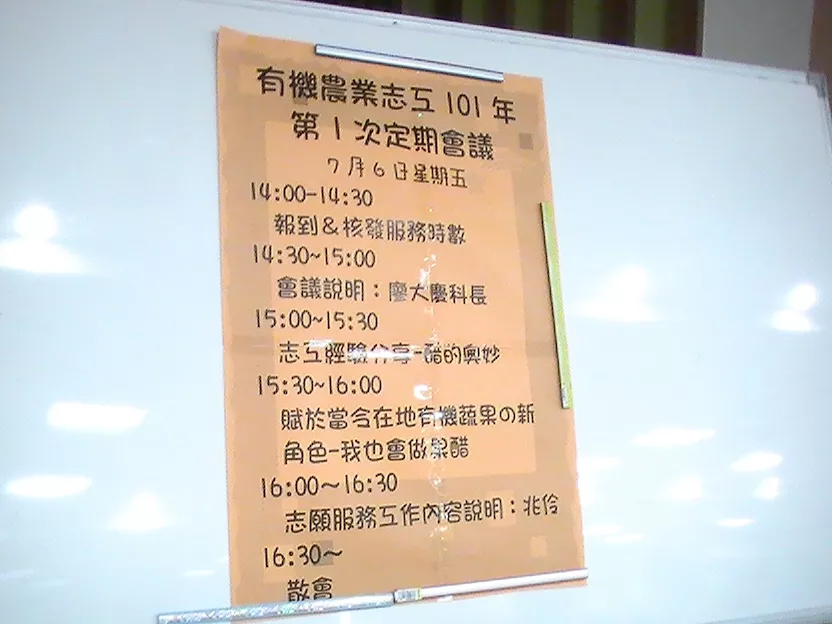 有機農業志工101年
第1次定期會議
7月6日星期五
14:00-14:30
報到&核發服務時數
14:30~15:00
會議說明：廖大慶科長
15:00~15:30
志工經驗分享-醋的奧妙
15:30~16:00
賦於當令在地有機蔬果の新
角色-我也會做果醋
16:00~16:30
志願服務工作內容說明：兆伶
16:30~
散會